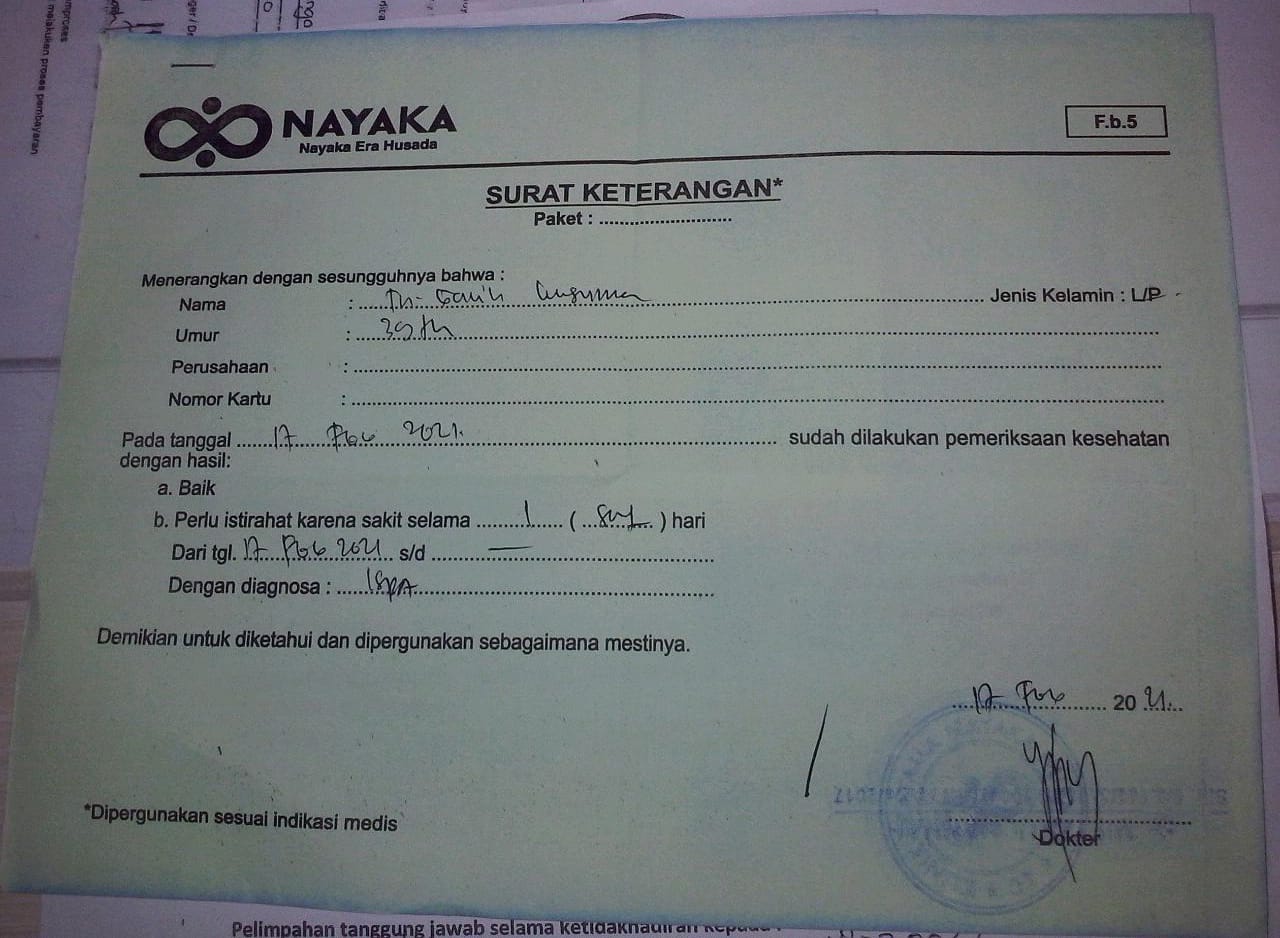 NAYAKA
Nayaka Era Husada
F.b.5
SURAT KETERANGAN*
Paket : ............................
Menerangkan dengan sesungguhnya bahwa :
Nama : Tn. Jenis Kelamin : L/P
Umur : 39 th
Perusahaan :
Nomor Kartu :
Pada tanggal 17 Feb 2021. sudah dilakukan pemeriksaan kesehatan
dengan hasil:
a. Baik
b. Perlu istirahat karena sakit selama 1 ( satu ) hari
Dari tgl. 17 Feb 2021 s/d —
Dengan diagnosa : ISPA
Demikian untuk diketahui dan dipergunakan sebagaimana mestinya.
17 Feb 20 21.
*Dipergunakan sesuai indikasi medis
Dokter
Pelimpahan tanggung jawab selama ketidakhadiran kepada :
melakukan proses pembayaran